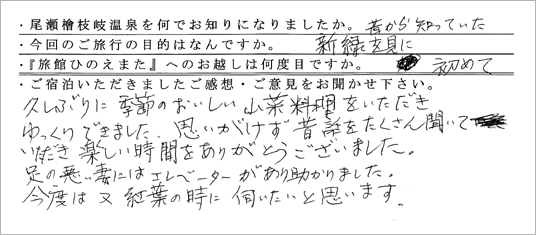 ・尾瀬檜枝岐温泉を何でお知りになりましたか。 昔から知っていた
・今回のご旅行の目的はなんですか。 新緑を見に
・『旅館ひのえまた』へのお越しは何度目ですか。 初めて
・ご宿泊いただきましたご感想・ご意見をお聞かせ下さい。
久しぶりに季節のおいしい山菜料理をいただき
ゆっくりできました、思いがけず昔話をたくさん聞いて
いただき楽しい時間をありがとうございました。
足の悪い妻にはエレベーターがあり助かりました。
今度は又紅葉の時に伺いたいと思います。